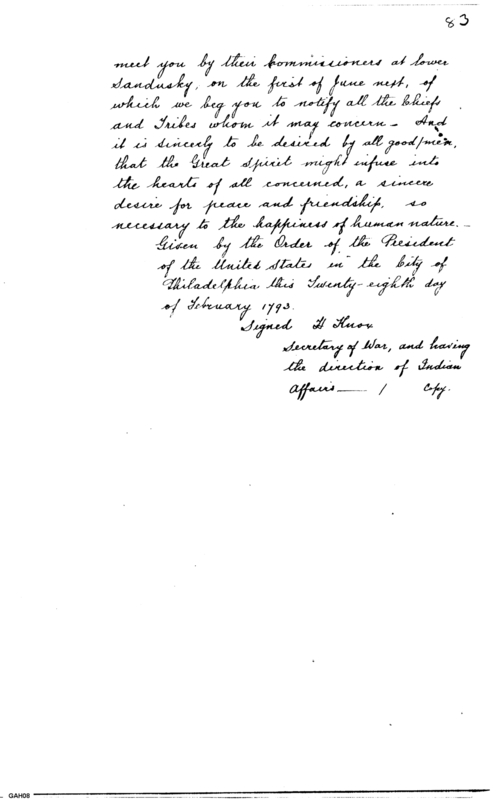 83
meet you by their Commissioners at lower
Sandusky, on the first of June next, of
which we beg you to notify all the Chiefs
and Tribes whom it may concern – And
it is sincerely to be desired by all good men,
that the Great Spirit might infuse into
the hearts of all concerned, a sincere
desire for peace and friendship, so
necessary to the happiness of human nature. –
Given by the Order of the President
of the United States in the City of
Philadelphia this Twenty-eighth day
of February 1793.
Signed H Knox
Secretary of War, and having
the direction of Indian
Affairs — / Copy.
GAH08